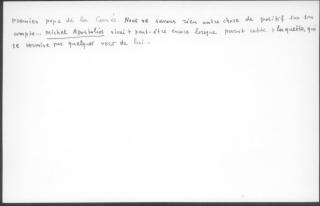 premier pope de la Canée. Nous ne savons rien autre chose de positif sur son
compte... Michel Apostolios vivait peut-être encore lorsque parut cette plaquette, qui
se termine par quelques vers de lui...